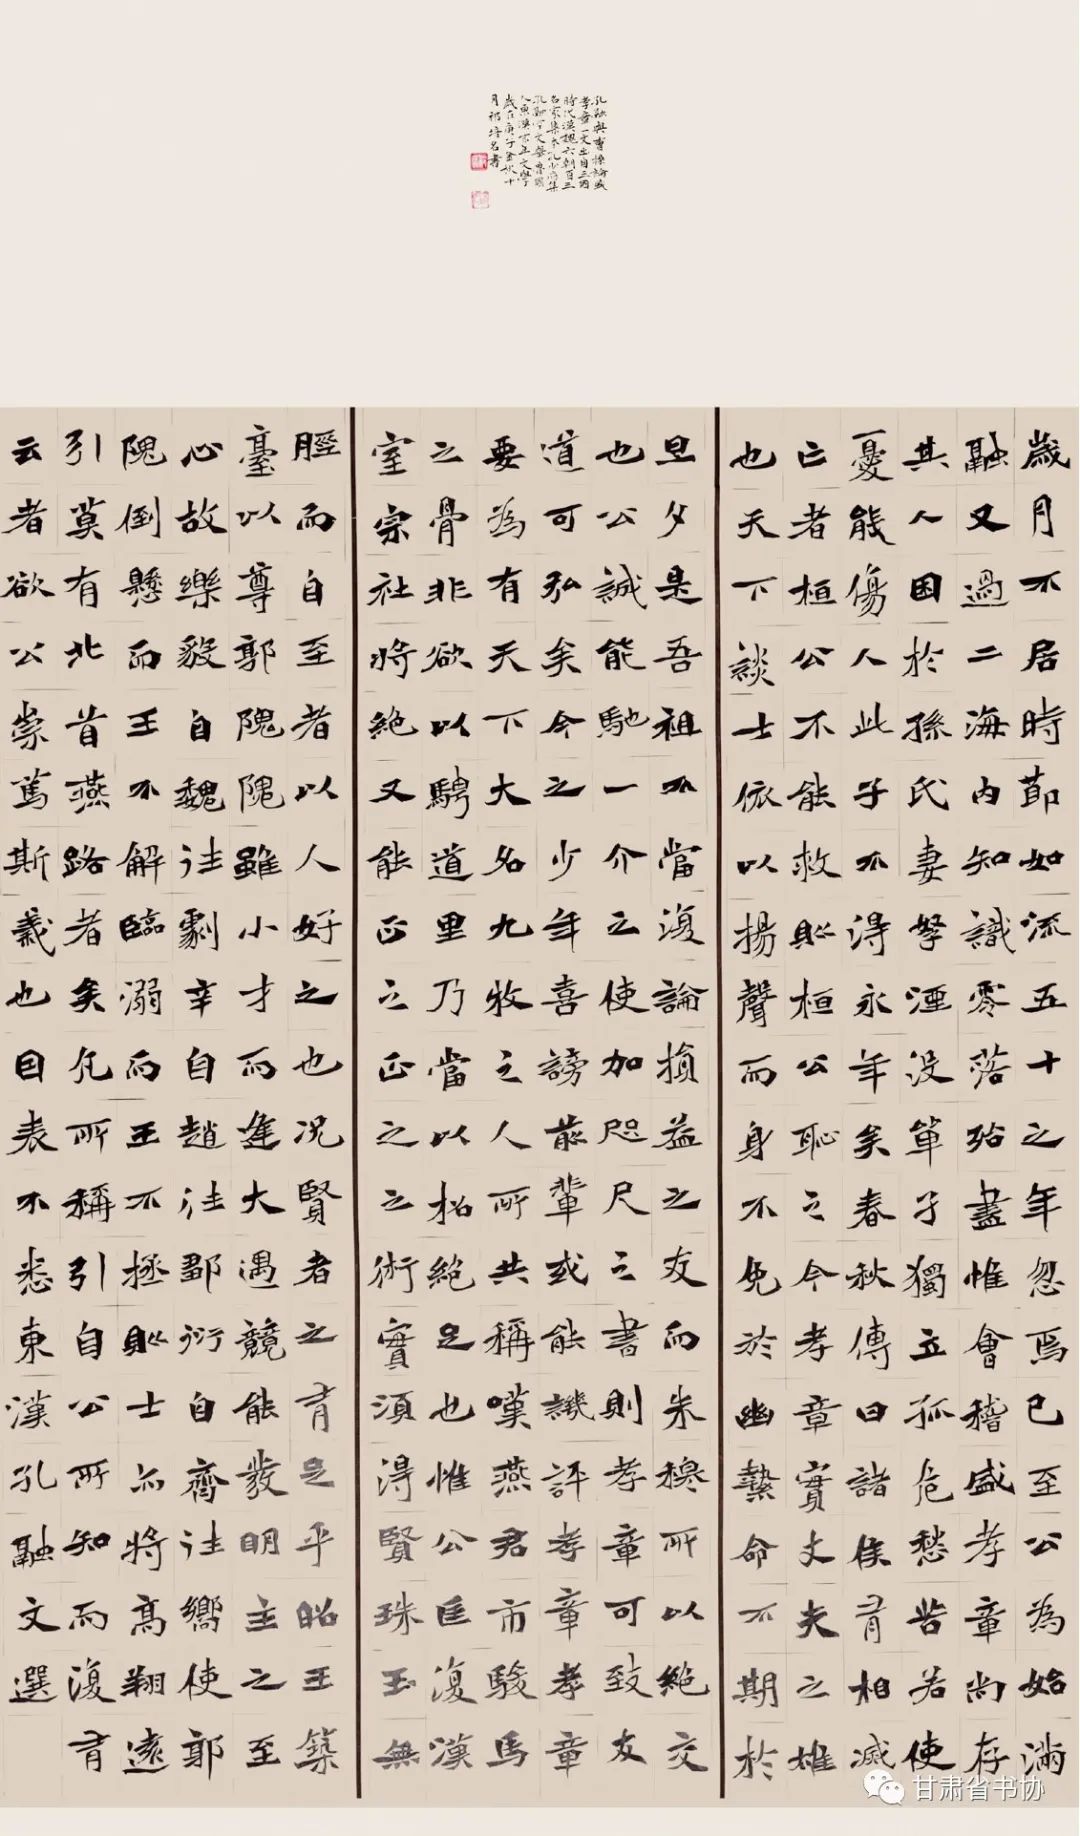 孔融與曹操論盛
孝章一文出自三國
時代漢魏六朝百三
名家集本孔少府集
孔融字文舉魯國
人東漢末年文學
歲在庚子金秋十
月祁培名書
歲月不居時節如流五十之年忽焉已至公為始滿
融又過二海內知識零落殆盡惟會稽盛孝章尚存
其人困於孫氏妻孥湮沒單孑獨立孤危愁苦若使
憂能傷人此子不得永年矣春秋傳曰諸侯有相滅
亡者桓公不能救則桓公恥之今孝章實丈夫之雄
也天下談士依以揚聲而身不免於幽縶命不期於
旦夕是吾祖不當復論損益之友而朱穆所以絕交
也公誠能馳一介之使加咫尺之書則孝章可致友
道可弘矣今之少年喜謗前輩或能譏評孝章孝章
要為有天下大名九牧之人所共稱嘆燕君市駿馬
之骨非欲以騁道里乃當以招絕足也惟公匡復漢
室宗社將絕又能正之正之之術實須得賢珠玉無
脛而自至者以人好之也况賢者之有足乎昭王築
臺以尊郭隗隗雖小才而逢大遇競能發明主之至
心故樂毅自魏往劇辛自趙往鄒衍自齊往嚮使郭
隗倒懸而王不解臨溺而王不拯則士亦將高翔遠
引莫有北首燕路者矣凡所稱引自公所知而復有
云者欲公崇篤斯義也因表不悉東漢孔融文選
甘肃省书协